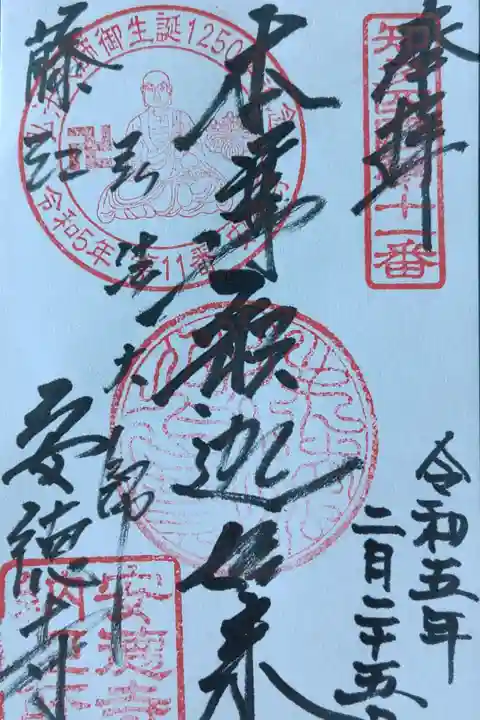 奉拝
令和五年
二月二十五
本尊釈迦如来
弘法大師
藤江 安徳寺
十一番
師御生誕1250
令和5年 11番
安徳寺